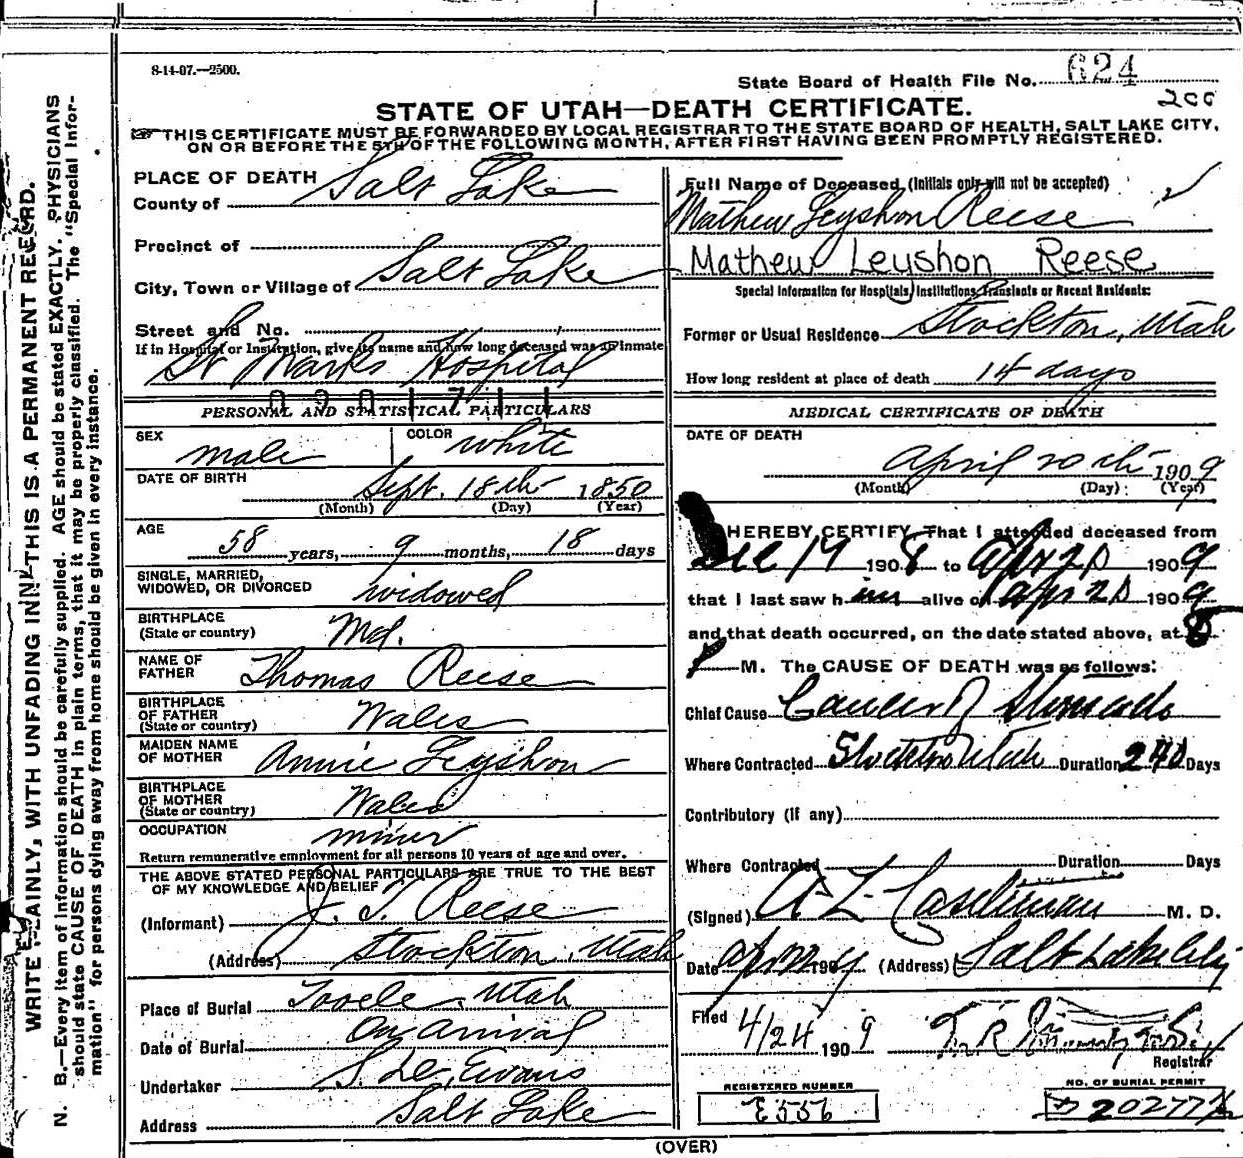 8-14-07.—2500.
State Board of Health File No. 624
200
STATE OF UTAH—DEATH CERTIFICATE.
THIS CERTIFICATE MUST BE FORWARDED BY LOCAL REGISTRAR TO THE STATE BOARD OF HEALTH, SALT LAKE CITY,
ON OR BEFORE THE 5TH OF THE FOLLOWING MONTH, AFTER FIRST HAVING BEEN PROMPTLY REGISTERED.
WRITE PLAINLY, WITH UNFADING INK—THIS IS A PERMANENT RECORD.
N. B.—Every item of information should be carefully supplied. AGE should be stated EXACTLY. PHYSICIANS
should state CAUSE OF DEATH in plain terms, that it may be properly classified. The "Special Infor-
mation" for persons dying away from home should be given in every instance.
PLACE OF DEATH
County of Salt Lake
Precinct of
City, Town or Village of Salt Lake
Street and No.
If in Hospital or Institution, give its name and how long deceased was an inmate
St Marks Hospital
PERSONAL AND STATISTICAL PARTICULARS
SEX male
COLOR white
DATE OF BIRTH Sept. 18th 1850
(Month) (Day) (Year)
AGE 58 years, 9 months, 18 days
SINGLE, MARRIED,
WIDOWED, OR DIVORCED widowed
BIRTHPLACE
(State or country) Md.
NAME OF
FATHER Thomas Reese
BIRTHPLACE
OF FATHER
(State or country) Wales
MAIDEN NAME
OF MOTHER Annie Leyshon
BIRTHPLACE
OF MOTHER
(State or country) Wales
OCCUPATION miner
Return remunerative employment for all persons 10 years of age and over.
THE ABOVE STATED PERSONAL PARTICULARS ARE TRUE TO THE BEST
OF MY KNOWLEDGE AND BELIEF
(Informant) J. T. Reese
(Address) Stockton, Utah
Place of Burial Tooele, Utah
Date of Burial On arrival
Undertaker Evans
Address Salt Lake
Full Name of Deceased (Initials only will not be accepted)
Mathew Leyshon Reese
Mathew Leyshon Reese
Special Information for Hospitals, Institutions, Transients or Recent Residents:
Former or Usual Residence Stockton, Utah
How long resident at place of death 14 days
MEDICAL CERTIFICATE OF DEATH
DATE OF DEATH
April 20th 1909
(Month) (Day) (Year)
HEREBY CERTIFY, That I attended deceased from
Dec 19 1908 to Apr 20 1909
that I last saw him alive on Apr 20 1909
and that death occurred, on the date stated above, at 8
P M. The CAUSE OF DEATH was as follows:
Chief Cause Cancer of Stomach
Where Contracted Stockton Utah Duration 240 Days
Contributory (if any)
Where Contracted Duration Days
(Signed) A L Castleman M. D.
Date (Address) Salt Lake City
Filed 4/24 1909
Registrar
REGISTERED NUMBER
E556
NO. OF BURIAL PERMIT
(OVER)